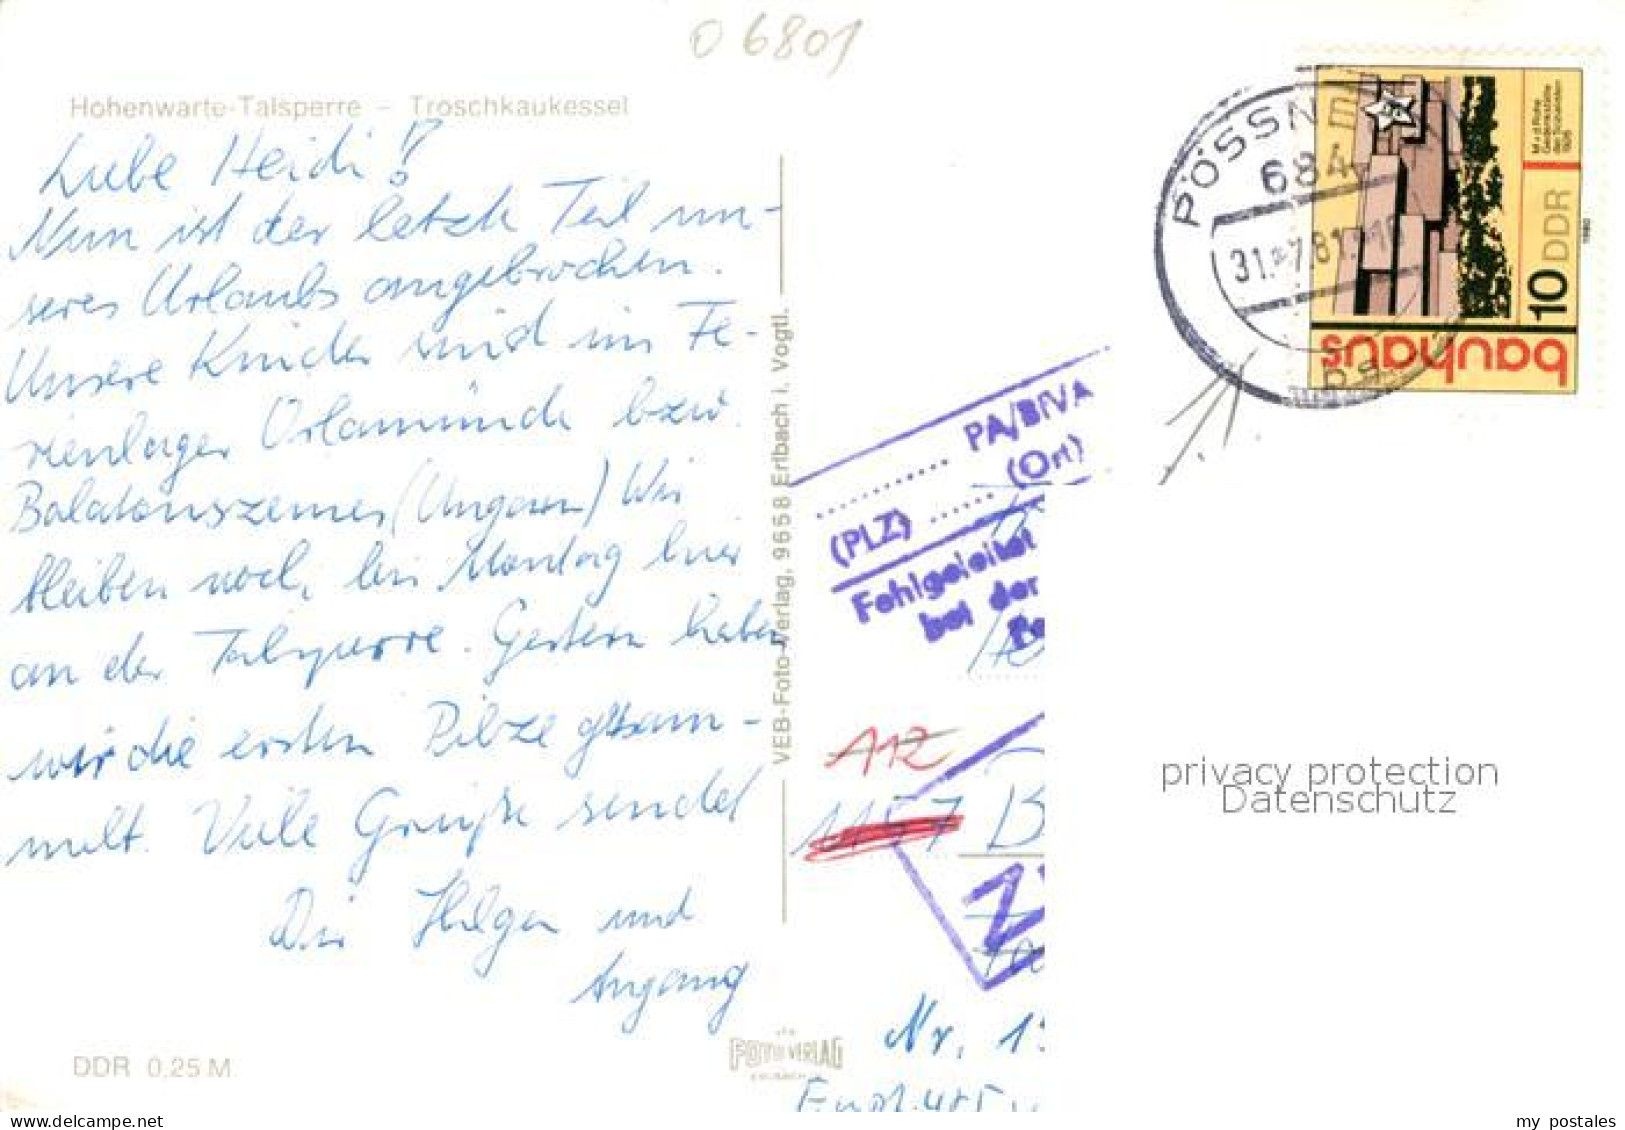 06801
Hohenwarte-Talsperre – Troschkaukessel
Liebe Heidi!
Nun ist der letzte Teil un-
seres Urlaubs angebrochen.
Unsere Kinder sind im Fe-
rienlager Orlamünde bzw.
Balatonszemes (Ungarn) Wir
bleiben noch bis Montag hier
an der Talsperre. Gestern haben
wir die ersten Pilze gesam-
melt. Viele Grüße sendet
Dir Helga und
DDR 0,25 M
VEB-Foto-Verlag, 9658 Erlbach i. Vogtl.
FOTO VERLAG
ERLBACH
PÖSSNE
684
31.-7.81.-10
bauhaus
10 DDR
1980
PA/BIVA
(Ort)
(PLZ)
Fehlgeleitet
bei der
112
1157 B
Nr. 1
privacy protection
Datenschutz
https://www.delcampe.net
my_postales